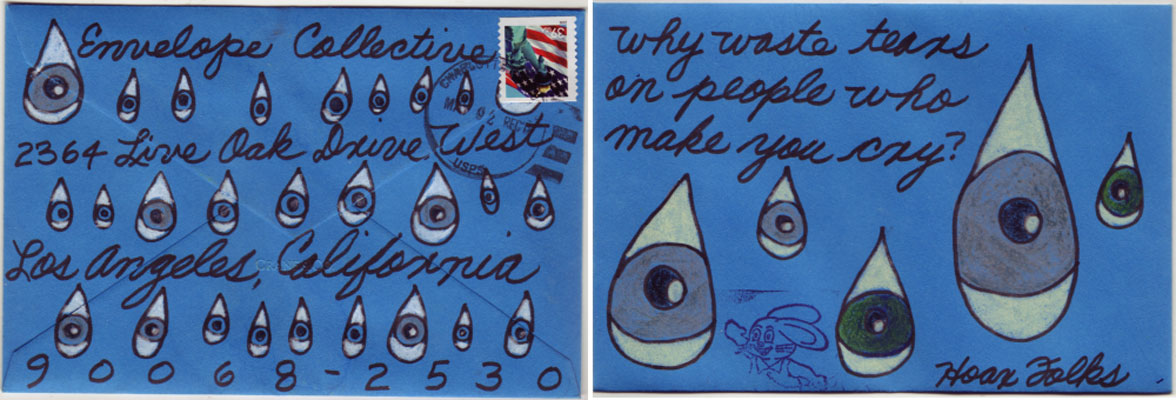 Envelope Collective
2364 Live Oak Drive West
Los Angeles, California
90068-2530
39
USPS
Why waste tears
on people who
make you cry?
Hoax Folks